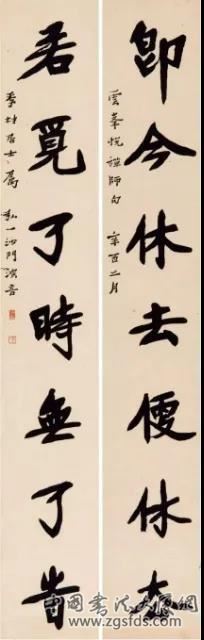 即今休去便休去
雲峯悅禪師句 辛酉二月
若覓了時無了旹
居士之屬 弘一沙門演音
中国书法大师网
www.zgsfds.com